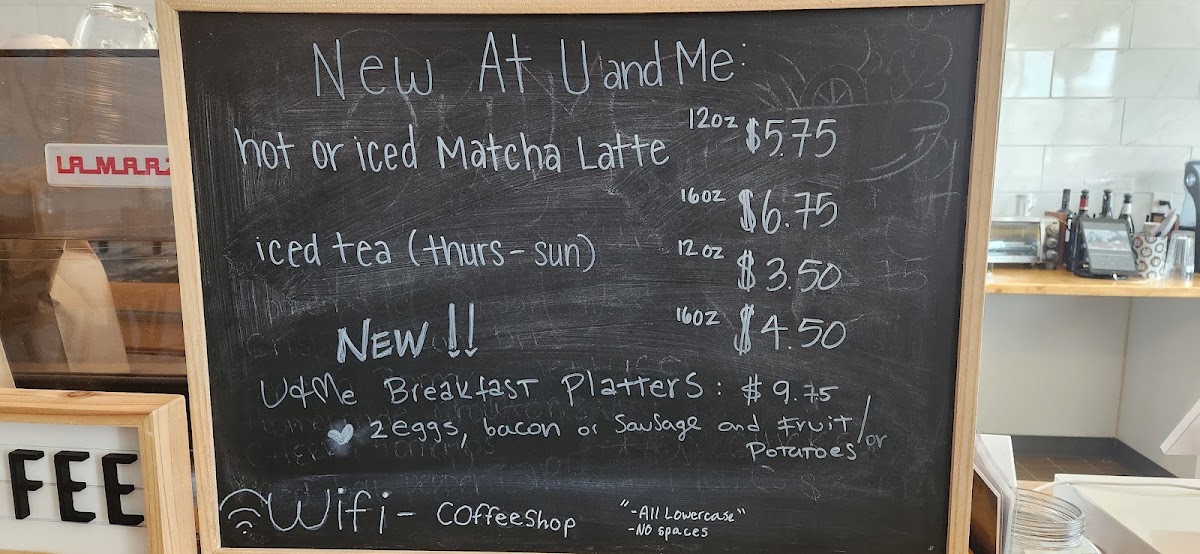 New At U and Me:
hot or iced Matcha Latte 12oz $5.75
16oz $6.75
iced tea (thurs-sun) 12oz $3.50
16oz $4.50
NEW!!
U&Me Breakfast Platters: $9.75
2 eggs, bacon or Sausage and Fruit/or
Potatoes
Wifi - coffeeshop "-All Lowercase"
-No spaces
LA MARZ
FEE